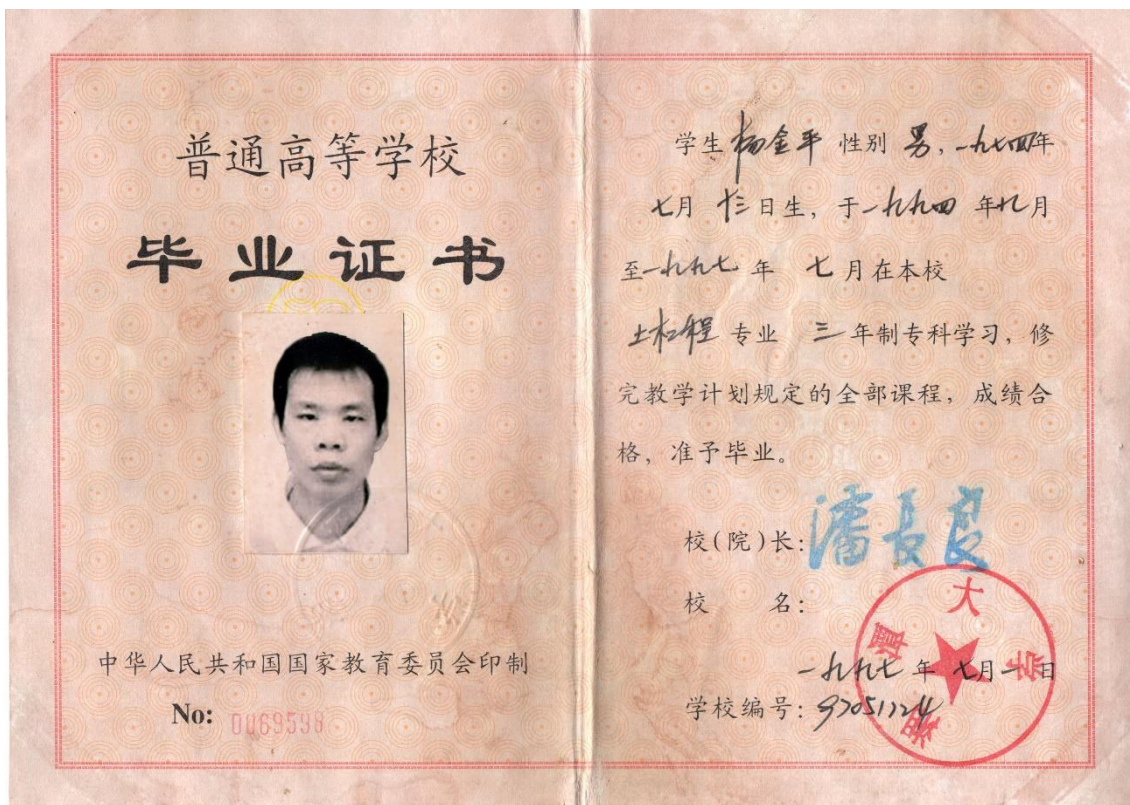 普通高等学校
毕业证书
中华人民共和国国家教育委员会印制
No: 0069598
学生 杨金平 性别 男，一九七四年
七月 十三日生，于一九九四 年九月
至一九九七 年 七月在本校
土木工程 专业 三 年制专科学习，修
完教学计划规定的全部课程，成绩合
格，准予毕业。
校(院)长：潘长良
校 名：
湘潭大学
一九九七 年 七月一日
学校编号：97051124